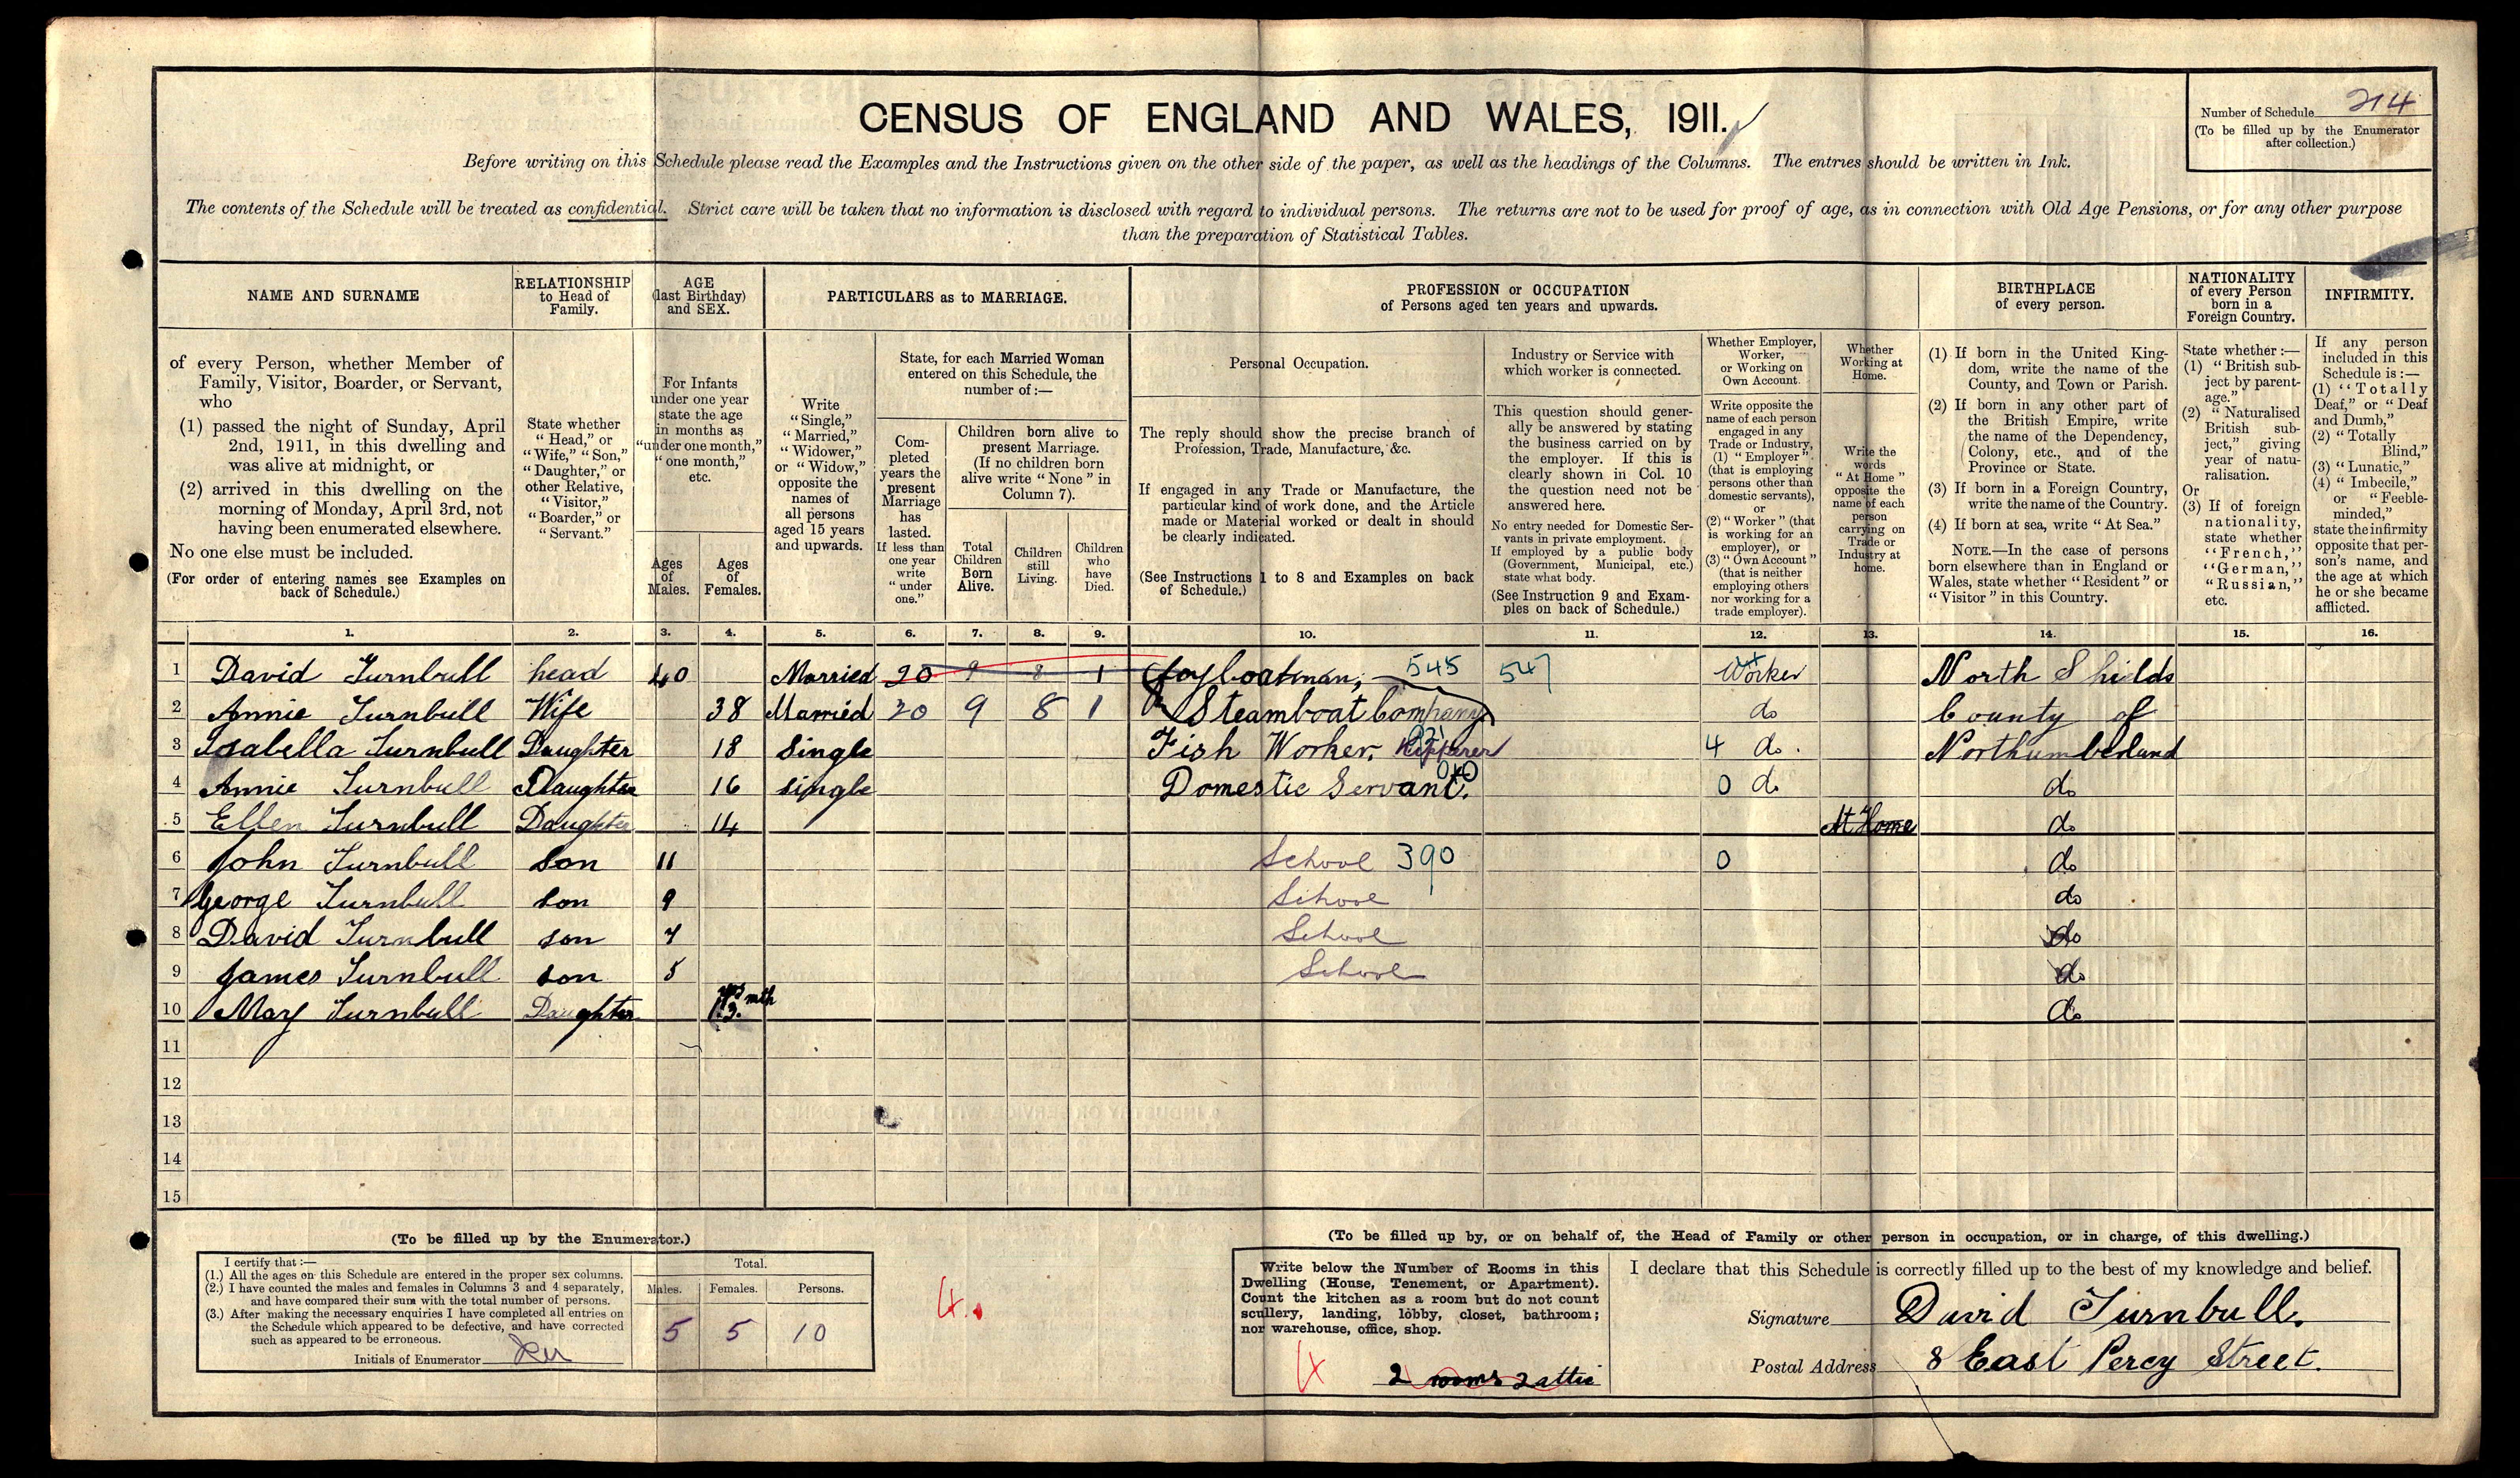 CENSUS OF ENGLAND AND WALES, 1911.
Number of Schedule 214
(To be filled up by the Enumerator
after collection.)
Before writing on this Schedule please read the Examples and the Instructions given on the other side of the paper, as well as the headings of the Columns. The entries should be written in Ink.
The contents of the Schedule will be treated as confidential. Strict care will be taken that no information is disclosed with regard to individual persons. The returns are not to be used for proof of age, as in connection with Old Age Pensions, or for any other purpose
than the preparation of Statistical Tables.
NAME AND SURNAME
of every Person, whether Member of
Family, Visitor, Boarder, or Servant,
who
(1) passed the night of Sunday, April
2nd, 1911, in this dwelling and
was alive at midnight, or
(2) arrived in this dwelling on the
morning of Monday, April 3rd, not
having been enumerated elsewhere.
No one else must be included.
(For order of entering names see Examples on
back of Schedule.)
RELATIONSHIP
to Head of
Family.
State whether
"Head," or
"Wife," "Son,"
"Daughter," or
other Relative,
"Visitor,"
"Boarder," or
"Servant."
AGE
(last Birthday)
and SEX.
For Infants
under one year
state the age
in months as
"under one month,"
"one month,"
etc.
Ages
of
Males.
Ages
of
Females.
PARTICULARS as to MARRIAGE.
Write
"Single,"
"Married,"
"Widower,"
or "Widow,"
opposite the
names of
all persons
aged 15 years
and upwards.
State, for each Married Woman
entered on this Schedule, the
number of:—
Com-
pleted
years the
present
Marriage
has
lasted.
If less than
one year
write
"under
one."
Children born alive to
present Marriage.
(If no children born
alive write "None" in
Column 7).
Total
Children
Born
Alive.
Children
still
Living.
Children
who
have
Died.
PROFESSION or OCCUPATION
of Persons aged ten years and upwards.
Personal Occupation.
The reply should show the precise branch of
Profession, Trade, Manufacture, &c.
If engaged in any Trade or Manufacture, the
particular kind of work done, and the Article
made or Material worked or dealt in should
be clearly indicated.
(See Instructions 1 to 8 and Examples on back
of Schedule.)
Industry or Service with
which worker is connected.
This question should gener-
ally be answered by stating
the business carried on by
the employer. If this is
clearly shown in Col. 10
the question need not be
answered here.
No entry needed for Domestic Ser-
vants in private employment.
If employed by a public body
(Government, Municipal, etc.)
state what body.
(See Instruction 9 and Exam-
ples on back of Schedule.)
Whether Employer,
Worker,
or Working on
Own Account.
Write opposite the
name of each person
engaged in any
Trade or Industry,
(1) "Employer"
(that is employing
persons other than
domestic servants),
or
(2) "Worker" (that
is working for an
employer), or
(3) "Own Account"
(that is neither
employing others
nor working for a
trade employer).
Whether
Working at
Home.
Write the
words
"At Home"
opposite the
name of each
person
carrying on
Trade or
Industry at
home.
BIRTHPLACE
of every person.
(1) If born in the United King-
dom, write the name of the
County, and Town or Parish.
(2) If born in any other part of
the British Empire, write
the name of the Dependency,
Colony, etc., and of the
Province or State.
(3) If born in a Foreign Country,
write the name of the Country.
(4) If born at sea, write "At Sea."
NOTE.—In the case of persons
born elsewhere than in England or
Wales, state whether "Resident" or
"Visitor" in this Country.
NATIONALITY
of every Person
born in a
Foreign Country.
State whether:—
(1) "British sub-
ject by parent-
age."
(2) "Naturalised
British sub-
ject," giving
year of natu-
ralisation.
Or
(3) If of foreign
nationality,
state whether
"French,"
"German,"
"Russian,"
etc.
INFIRMITY.
If any person
included in this
Schedule is:—
(1) "Totally
Deaf," or "Deaf
and Dumb,"
(2) "Totally
Blind,"
(3) "Lunatic,"
(4) "Imbecile,"
or "Feeble-
minded,"
state the infirmity
opposite that per-
son's name, and
the age at which
he or she became
afflicted.
1. 2. 3. 4. 5. 6. 7. 8. 9. 10. 11. 12. 13. 14. 15. 16.
1 David Turnbull head 40 Married 20 9 8 1 Foyboatman, 545 547 Worker North Shields
2 Annie Turnbull Wife 38 Married 20 9 8 1 Steamboat Company do County of
3 Isabella Turnbull Daughter 18 Single Fish Worker, Kipperer 4 do. Northumberland
4 Annie Turnbull Daughter 16 single Domestic Servant. 0 do do
5 Ellen Turnbull Daughter 14 At Home do
6 John Turnbull son 11 School 390 0 do
7 George Turnbull son 9 School do
8 David Turnbull son 7 School do
9 James Turnbull son 5 School do
10 Mary Turnbull Daughter 1 yrs 3. mth do
11
12
13
14
15
(To be filled up by the Enumerator.)
I certify that:—
(1.) All the ages on this Schedule are entered in the proper sex columns.
(2.) I have counted the males and females in Columns 3 and 4 separately,
and have compared their sum with the total number of persons.
(3.) After making the necessary enquiries I have completed all entries on
the Schedule which appeared to be defective, and have corrected
such as appeared to be erroneous.
Initials of Enumerator
Total.
Males. Females. Persons.
5 5 10
4.
(To be filled up by, or on behalf of, the Head of Family or other person in occupation, or in charge, of this dwelling.)
Write below the Number of Rooms in this
Dwelling (House, Tenement, or Apartment).
Count the kitchen as a room but do not count
scullery, landing, lobby, closet, bathroom;
nor warehouse, office, shop.
4 2 rooms 2 attic
I declare that this Schedule is correctly filled up to the best of my knowledge and belief.
Signature David Turnbull.
Postal Address 8 East Percy Street.